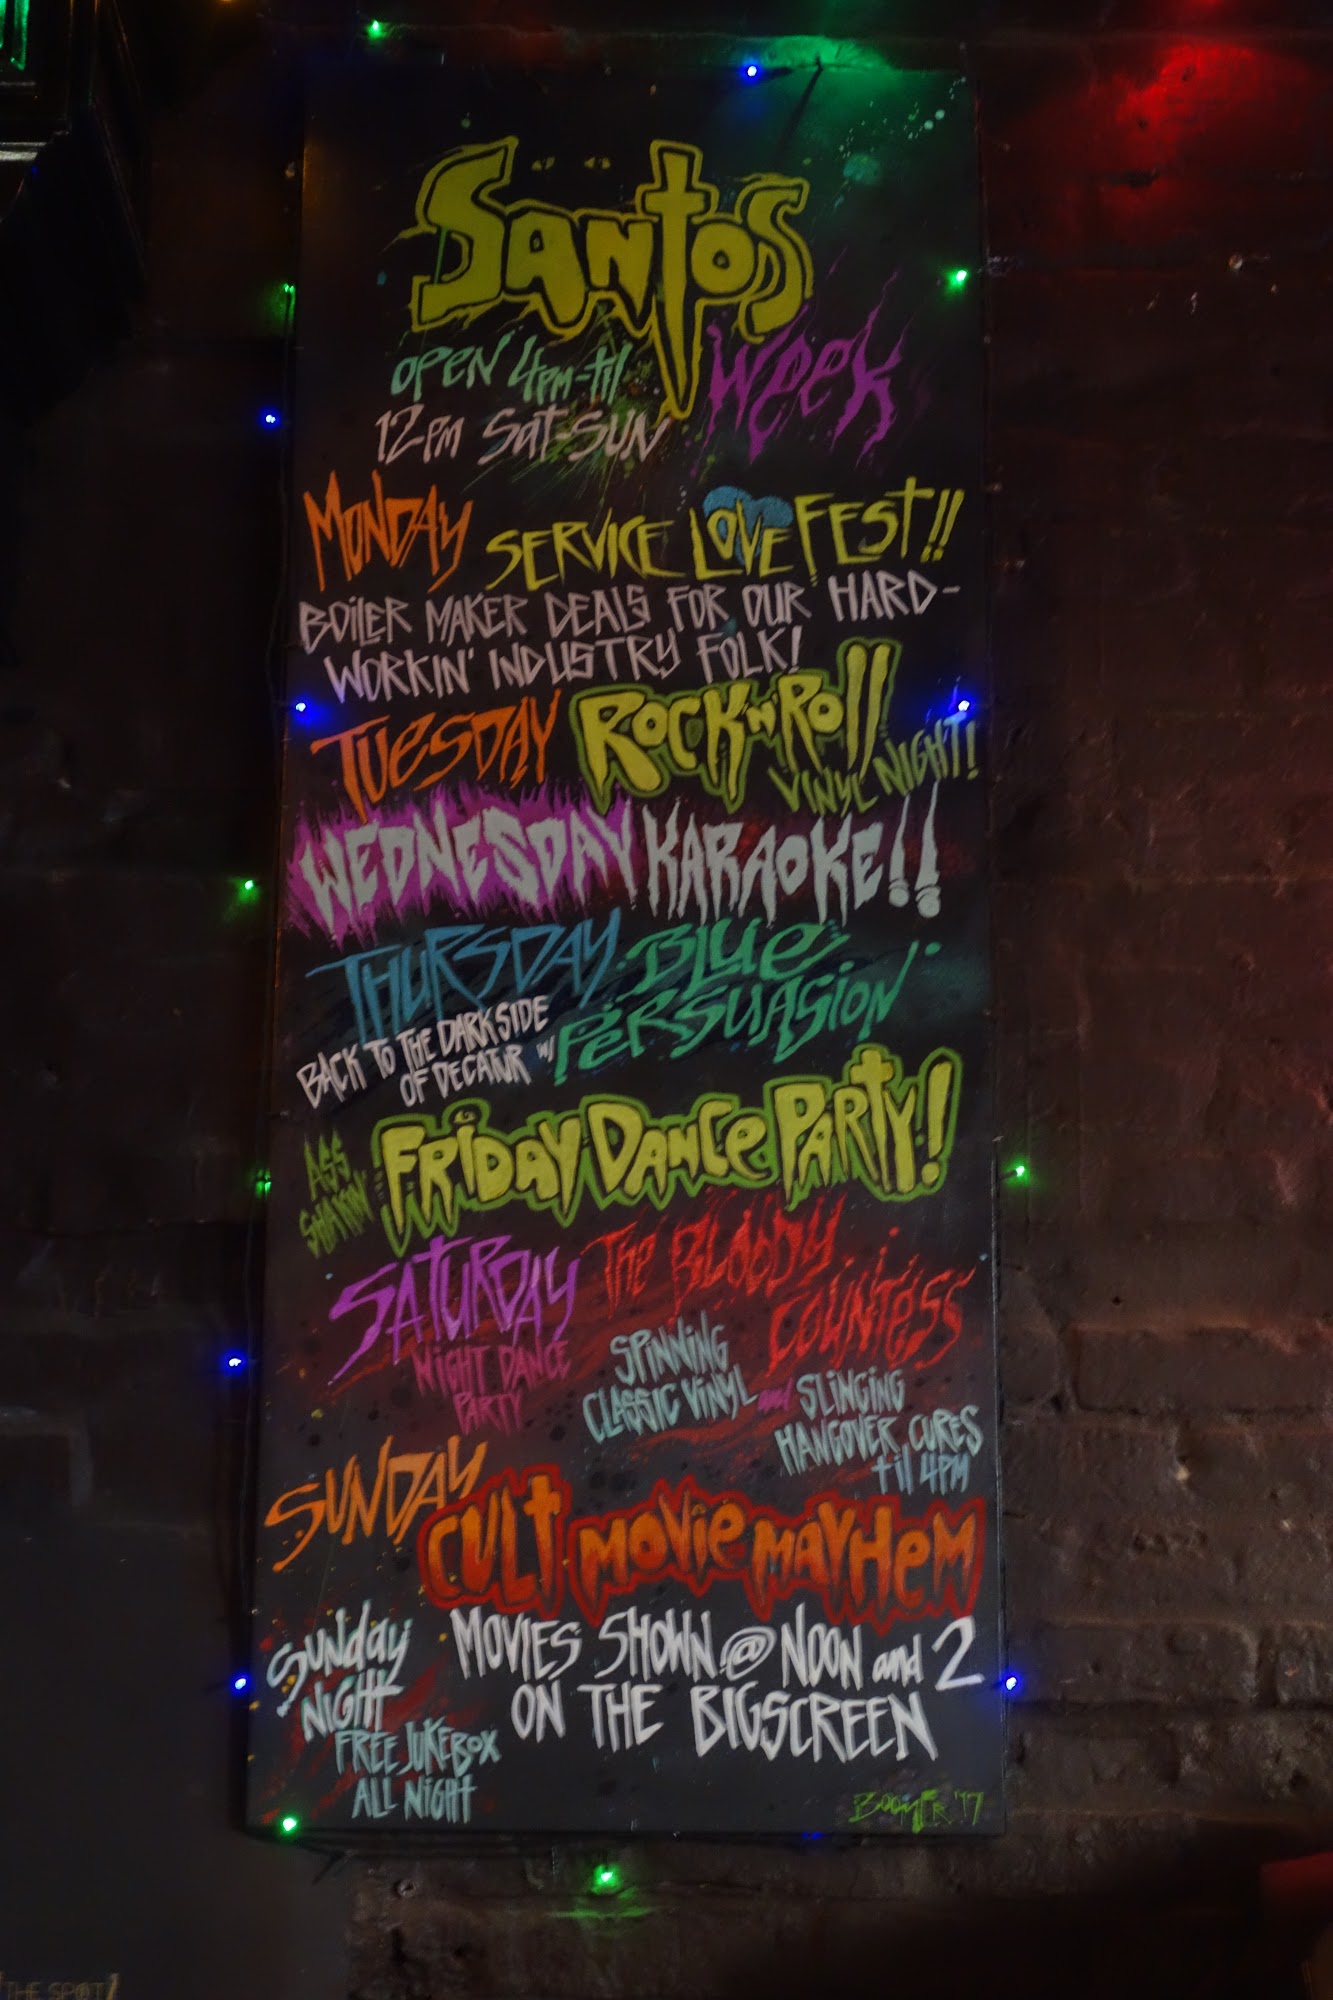 Santos
Week
OPEN 4PM-til
12PM Sat-SUN
MONDAY SERVICE LOVE FEST!!
BOILER MAKER DEALS FOR OUR HARD-
WORKIN' INDUSTRY FOLK!
TUESDAY ROCK 'N' Roll
VINYL NIGHT!
WEDNESDAY KARAOKE!!
THURSDAY BLUE
PERSUASION
BACK TO THE DARK SIDE
OF DECATUR W/
ASS
SHAKIN'
FRIDAY DANCE PARTY!
SATURDAY
NIGHT DANCE
PARTY
THE BLOODY
COUNTESS
SPINNING
CLASSIC VINYL and SLINGING
HANGOVER CURES
til 4PM
SUNDAY
CULT MOVIE MAYHEM
MOVIES SHOWN @ NOON and 2
ON THE BIGSCREEN
SUNday
NIGHT
FREE JUKEBOX
ALL NIGHT
BOOMER '17
THE SPOT